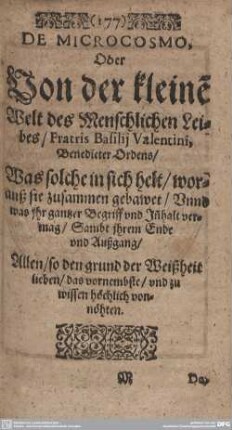 (177)
DE MICROCOSMO,
Oder
Von der kleinẽ
Welt des Menschlichen Lei-
bes / Fratris Basilij Valentini,
Benedicter Ordens /
Was solche in sich helt / wor-
auß sie zusammen gebawet / Vnnd
was jhr gantzer Begriff vnd Jñhalt ver-
mag / Sambt jhrem Ende
vnd Außgang /
Allen / so den grund der Weißheit
lieben / das vornembste / vnd zu
wissen höchlich von-
nöhten.
M
De-